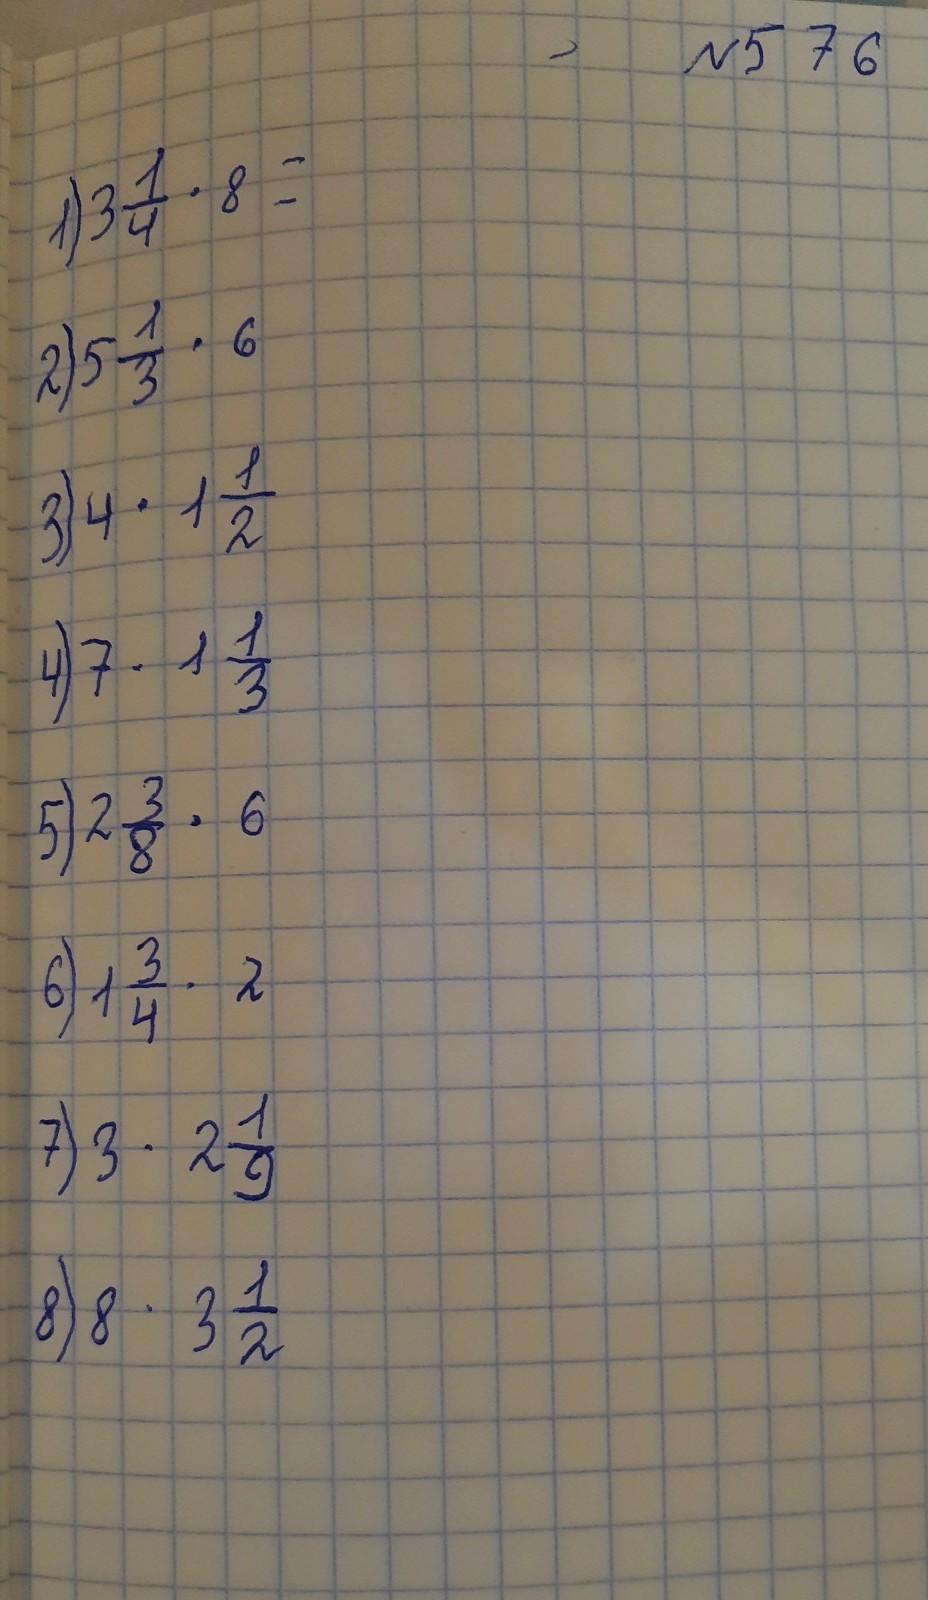 №576
1) 3 1/4 · 8 =
2) 5 1/3 · 6
3) 4 · 1 1/2
4) 7 · 1 1/3
5) 2 3/8 · 6
6) 1 3/4 · 2
7) 3 · 2 1/9
8) 8 · 3 1/2